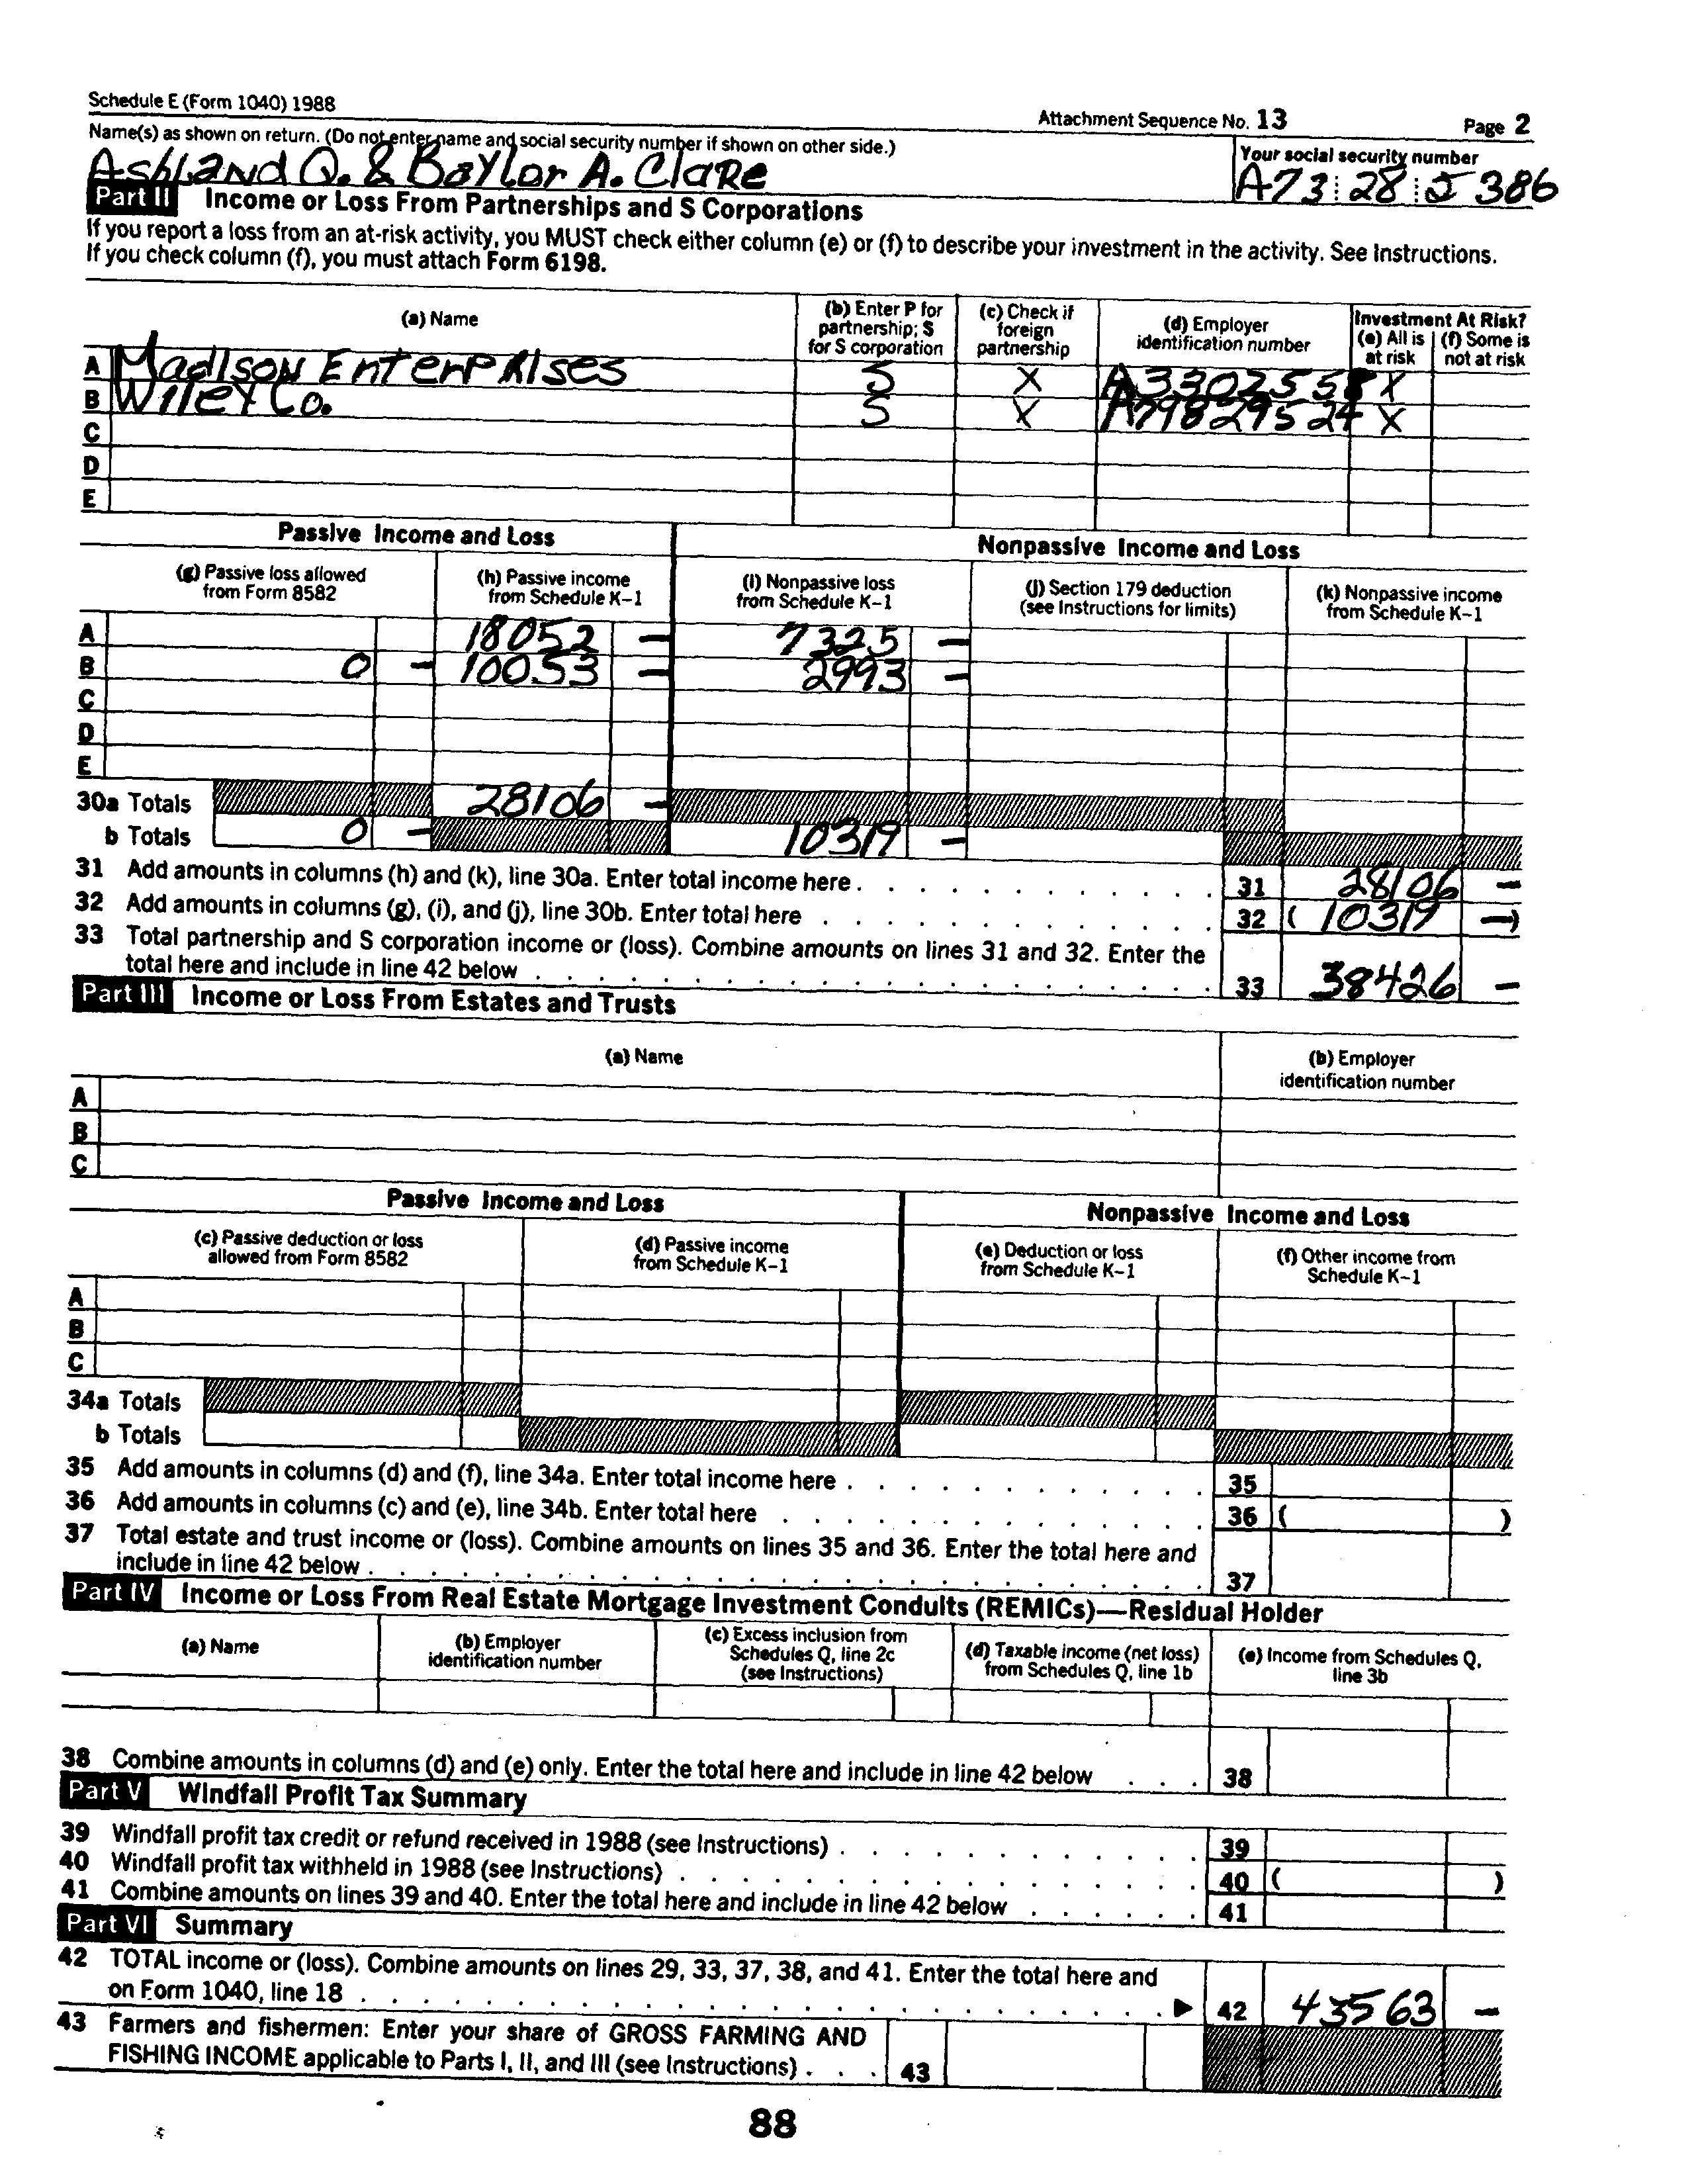 Schedule E (Form 1040) 1988
Attachment Sequence No. 13
Page 2
Name(s) as shown on return. (Do not enter name and social security number if shown on other side.)
Your social security number
Ashland Q. & Baylor A. Clare
A73 28 5386
Part II Income or Loss From Partnerships and S Corporations
If you report a loss from an at-risk activity, you MUST check either column (e) or (f) to describe your investment in the activity. See Instructions.
If you check column (f), you must attach Form 6198.
(a) Name
(b) Enter P for partnership; S for S corporation
(c) Check if foreign partnership
(d) Employer identification number
Investment At Risk?
(e) All is at risk
(f) Some is not at risk
A Madison Enterprises S X A33025558 X
B Wiley Co. S X A79829524 X
C
D
E
Passive Income and Loss
Nonpassive Income and Loss
(g) Passive loss allowed from Form 8582
(h) Passive income from Schedule K-1
(i) Nonpassive loss from Schedule K-1
(j) Section 179 deduction (see Instructions for limits)
(k) Nonpassive income from Schedule K-1
A 18052 - 7325 -
B 0 - 10053 - 2993 -
C
D
E
30a Totals 28106 -
b Totals 0 - 10319 -
31 Add amounts in columns (h) and (k), line 30a. Enter total income here . 31 28106 -
32 Add amounts in columns (g), (i), and (j), line 30b. Enter total here . 32 ( 10319 -)
33 Total partnership and S corporation income or (loss). Combine amounts on lines 31 and 32. Enter the
total here and include in line 42 below . 33 38426 -
Part III Income or Loss From Estates and Trusts
(a) Name
(b) Employer identification number
A
B
C
Passive Income and Loss
Nonpassive Income and Loss
(c) Passive deduction or loss allowed from Form 8582
(d) Passive income from Schedule K-1
(e) Deduction or loss from Schedule K-1
(f) Other income from Schedule K-1
A
B
C
34a Totals
b Totals
35 Add amounts in columns (d) and (f), line 34a. Enter total income here . 35
36 Add amounts in columns (c) and (e), line 34b. Enter total here . 36 ( )
37 Total estate and trust income or (loss). Combine amounts on lines 35 and 36. Enter the total here and
include in line 42 below . 37
Part IV Income or Loss From Real Estate Mortgage Investment Conduits (REMICs)—Residual Holder
(a) Name
(b) Employer identification number
(c) Excess inclusion from Schedules Q, line 2c (see Instructions)
(d) Taxable income (net loss) from Schedules Q, line 1b
(e) Income from Schedules Q, line 3b
38 Combine amounts in columns (d) and (e) only. Enter the total here and include in line 42 below . 38
Part V Windfall Profit Tax Summary
39 Windfall profit tax credit or refund received in 1988 (see Instructions) . 39
40 Windfall profit tax withheld in 1988 (see Instructions) . 40 ( )
41 Combine amounts on lines 39 and 40. Enter the total here and include in line 42 below . 41
Part VI Summary
42 TOTAL income or (loss). Combine amounts on lines 29, 33, 37, 38, and 41. Enter the total here and
on Form 1040, line 18 . ▶ 42 43563 -
43 Farmers and fishermen: Enter your share of GROSS FARMING AND
FISHING INCOME applicable to Parts I, II, and III (see Instructions) . 43
88